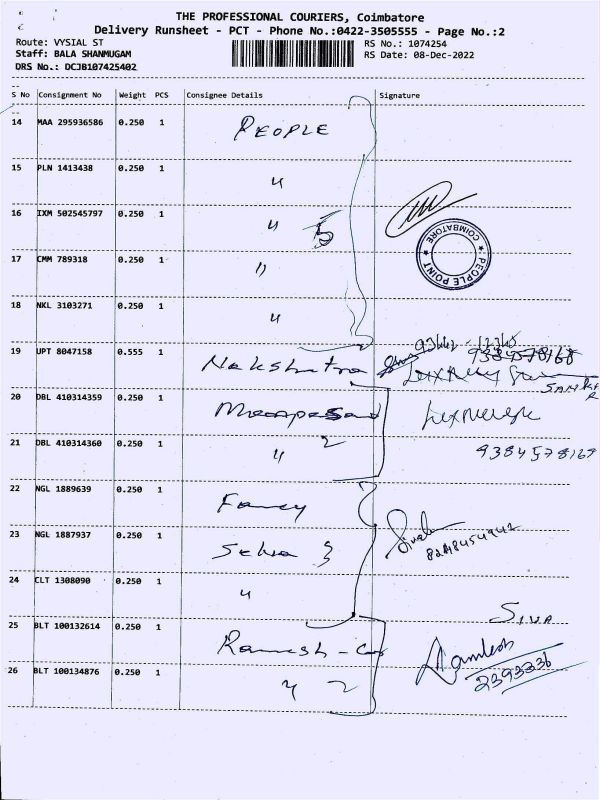 THE PROFESSIONAL COURIERS, Coimbatore
Delivery Runsheet - PCT - Phone No.:0422-3505555 - Page No.:2
Route: VYSIAL ST RS No.: 1074254
Staff: BALA SHANMUGAM RS Date: 08-Dec-2022
DRS No.: DCJB107425402
S No Consignment No Weight PCS Consignee Details Signature
14 MAA 295936586 0.250 1 PEOPLE
15 PLN 1413438 0.250 1 "
16 IXM 502545797 0.250 1 " 5
PEOPLE POINT ★ COIMBATORE ★
17 CMM 789318 0.250 1 "
18 NXL 3103271 0.250 1 "
19 UPT 8047158 0.555 1 Nakshatra 93442-12345
9384578168
20 DBL 410314359 0.250 1
21 DBL 410314360 0.250 1 " 2 9384578168
22 NGL 1889639 0.250 1 Fancy
23 NGL 1887937 0.250 1 Selva 3
24 CLT 1308090 0.250 1 "
SIVA
25 BLT 100132614 0.250 1 Ramesh - Co
2393336
26 BLT 100134876 0.250 1 " 2